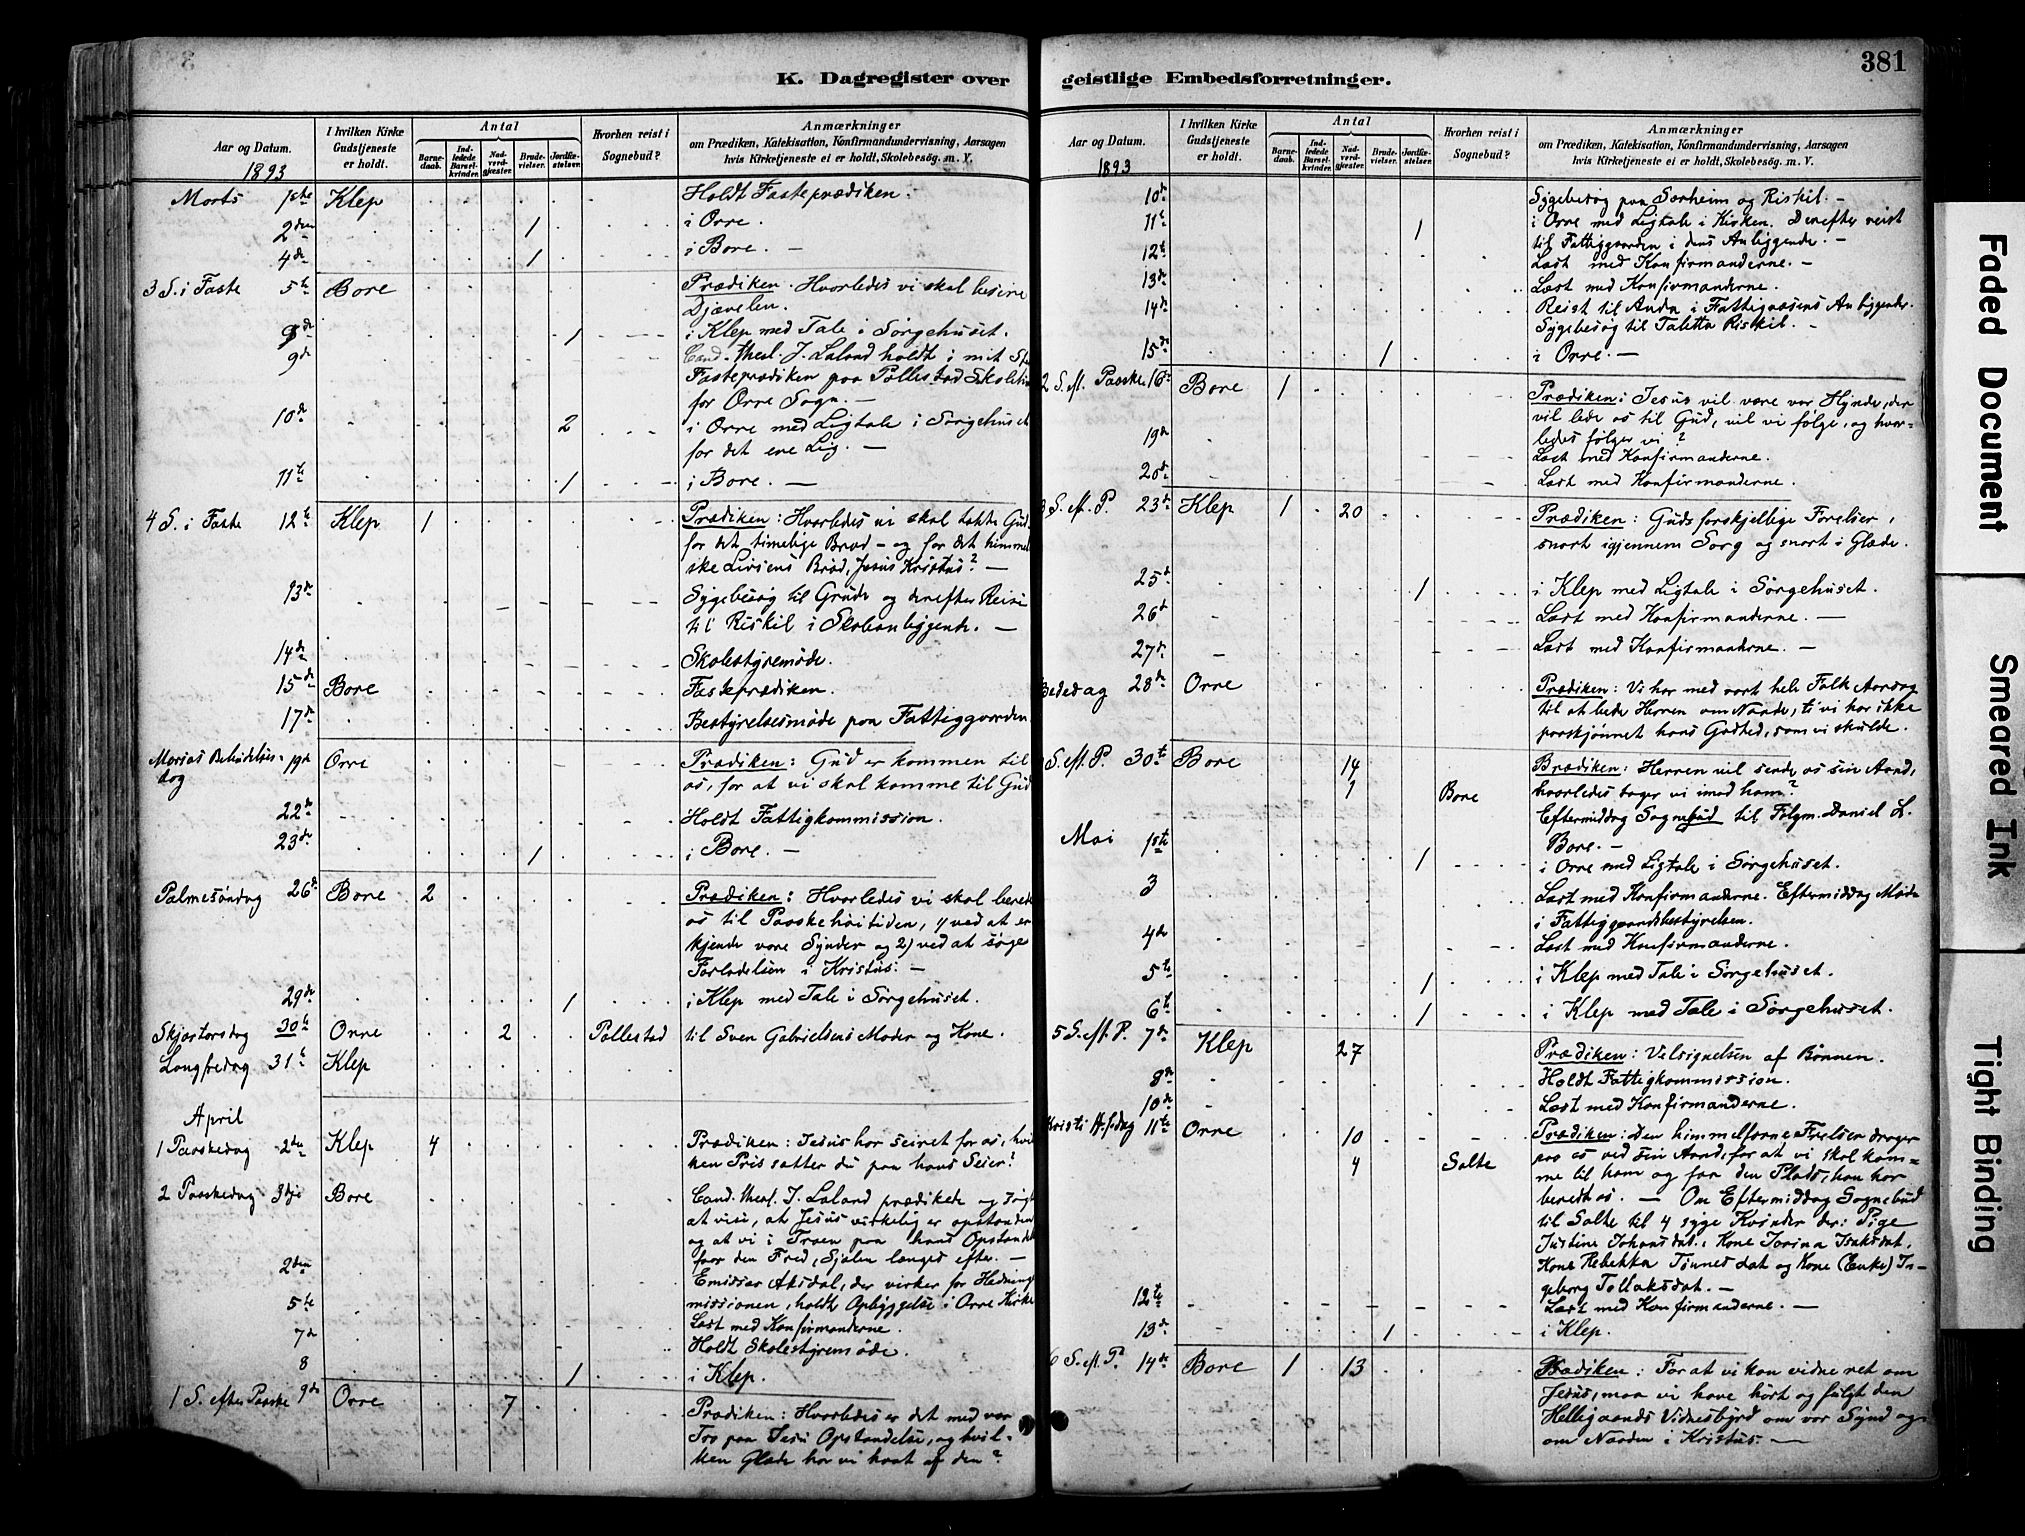 K. Dagregister over geistlige Embedsforretninger.
381
Aar og Datum.
1893
I hvilken Kirke Gudstjeneste er holdt.
Antal
Barnedaab.
Indledede Barselkvinder.
Nadverdgjester.
Brudevielser.
Jordfæstelser.
Hvorhen reist i Sognebud?
Anmærkninger
om Prædiken, Katekisation, Konfirmandundervisning, Aarsagen
hvis Kirketjeneste ei er holdt, Skolebesøg. m. V.
Marts 1ste Klep Holdt Fasteprædiken.
2den 1 i Orre.
4de 1 i Bore. —
3 S. i Faste 5te Bore Prædiken. Hvorledes vi skal beseire
Djævelen.
8de 1 i Klep med Tale i Sørgehuset.
9de Cand. theol. J. Laland holdt i mit
Fasteprædiken paa Pollestad
for Orre Sogn. —
10de 2 i Orre med Ligtale i Sørgehuset
for det ene Lig. —
11te 1 i Bore. —
4 S. i Faste 12te Klep 1 Prædiken: Hvorledes vi skal takke Gud
for det timelige Brød - og for det himmel
ske Livsens Brød, Jesus Kristus? —
13de Sygebesøg til Grude og derefter Reise
til Riskil i Skoleanliggende. —
14de Skolestyremøde.
15de Bore Fasteprædiken.
17de Bestyrelsesmøde paa Fattiggaarden
Marias Bebudelses- 19de Orre Prædiken: Gud er kommen til
dag os, for at vi skal komme til Gud
22de Holdt Fattigkommission.
23de 1 i Bore. —
Palmesøndag 26de Bore 2 Prædiken: Hvorledes vi skal berede
os til Paaskehøitiden, 1) ved at er
kjende vore Synder og 2) ved at søge
Forladelsen i Kristus. —
29de 1 i Klep med Tale i Sørgehuset.
Skjærtorsdag 30te Orre 2 Pollestad til Sven Gabrielsens Moder og Kone.
Langfredag 31te Klep
April
1 Paaskedag 2den Klep 4 Prædiken: Jesus har seiret for os, hvil
ken Pris sætter du paa hans Seier?
2 Paaskedag 3dje Bore Cand. theol. J. Laland prædikede og søgte
at vise, at Jesus virkelig er opstanden
og at vi i Troen paa hans Opstandelse
faar den Fred, Sjælen længes efter. —
2den Emissær Aksdal, der virker for Hedning
missionen, holdt Opbyggelse i Orre Kirke
5te Læst med Konfirmanderne.
7de Holdt Skolestyremøde.
8 1 i Klep.
1 S. efter Paaske 9de Orre 7 Prædiken: Hvorledes er det med vor
Tro paa Jesu Opstandelse, og hvil-
ken Glæde har vi havt af den?
Aar og Datum.
1893
I hvilken Kirke Gudstjeneste er holdt.
Antal
Barnedaab.
Indledede Barselkvinder.
Nadverdgjester.
Brudevielser.
Jordfæstelser.
Hvorhen reist i Sognebud?
Anmærkninger
om Prædiken, Katekisation, Konfirmandundervisning, Aarsagen
hvis Kirketjeneste ei er holdt, Skolebesøg. m. V.
10de Sygebesøg paa Sørheim og Riskil. —
11te 1 i Orre med Ligtale i Kirken. Derefter reist
til Fattiggaarden i dens Anliggende. —
12te Læst med Konfirmanderne. —
13de Læst med Konfirmanderne.
14de Reist til Anda i Fattigvæsens Anliggender.
Sygebesøg til Taletta Riskil. —
15de 1 i Orre. —
2 S. eft. Paaske 16de Bore 1 Prædiken: Jesus vil være vor Hyrde, der
vil lede os til Gud, vil vi følge, og hvor-
ledes følger vi?
19de Læst med Konfirmanderne.
20de Læst med Konfirmanderne.
3 S. eft. P. 23de Klep 1 20 Prædiken: Guds forskjellige Førelser,
snart igjennem Sorg og snart i Glæde.
25de 1 i Klep med Ligtale i Sørgehuset.
26de Læst med Konfirmanderne. —
27de Læst med Konfirmanderne. —
Bededag 28de Orre Prædiken: Vi har med vort hele Folk Aarsag
til at bede Herren om Naade, ti vi har ikke
paaskjønnet hans Godhed, som vi skulde.
S. eft. P. 30te Bore 14 Prædiken: Herren vil sende os sin Aand,
1 Bore hvorledes tager vi imod ham?
Eftermiddag Sognebud til Følgm. Daniel L.
Bore. —
Mai 1ste 1 i Orre med Ligtale i Sørgehuset.
3 Læst med Konfirmanderne. Eftermiddag Møde
i Fattiggaardsbestyrelsen.
4de Læst med Konfirmanderne.
5te 1 i Klep med Tale i Sørgehuset.
6te 1 i Klep med Tale i Sørgehuset.
5 S. eft. P. 7de Klep 27 Prædiken: Velsignelsen af Bønnen.
8de Holdt Fattigkommission.
10de Læst med Konfirmanderne.
Kristi H.f.dag 11te Orre 10 Prædiken: Den himmelfarne Frelser drager
4 Salte paa os ved sin Aand, for at vi skal kom=
me til ham og faa den Plads, han har
beredt os. — Om Eftermiddag Sognebud
til Salte til 4 syge Kvinder der: Pige
Justine Johansdat., Kone Jorina Isaksdat.,
Kone Rebekka Tønnesdat og Kone (Enke) In-
geborg Tollaksdat. —
12te Læst med Konfirmanderne. —
13de 1 i Klep.
6 S. eft. P. 14de Bore 1 13 Prædiken: For at vi kan vidne ret om
Jesus, maa vi have hørt og fulgt den
Helligaands Vidnesbyrd om vor Synd og
om Naaden i Kristus. —
Faded Document
Smeared Ink
Tight Binding